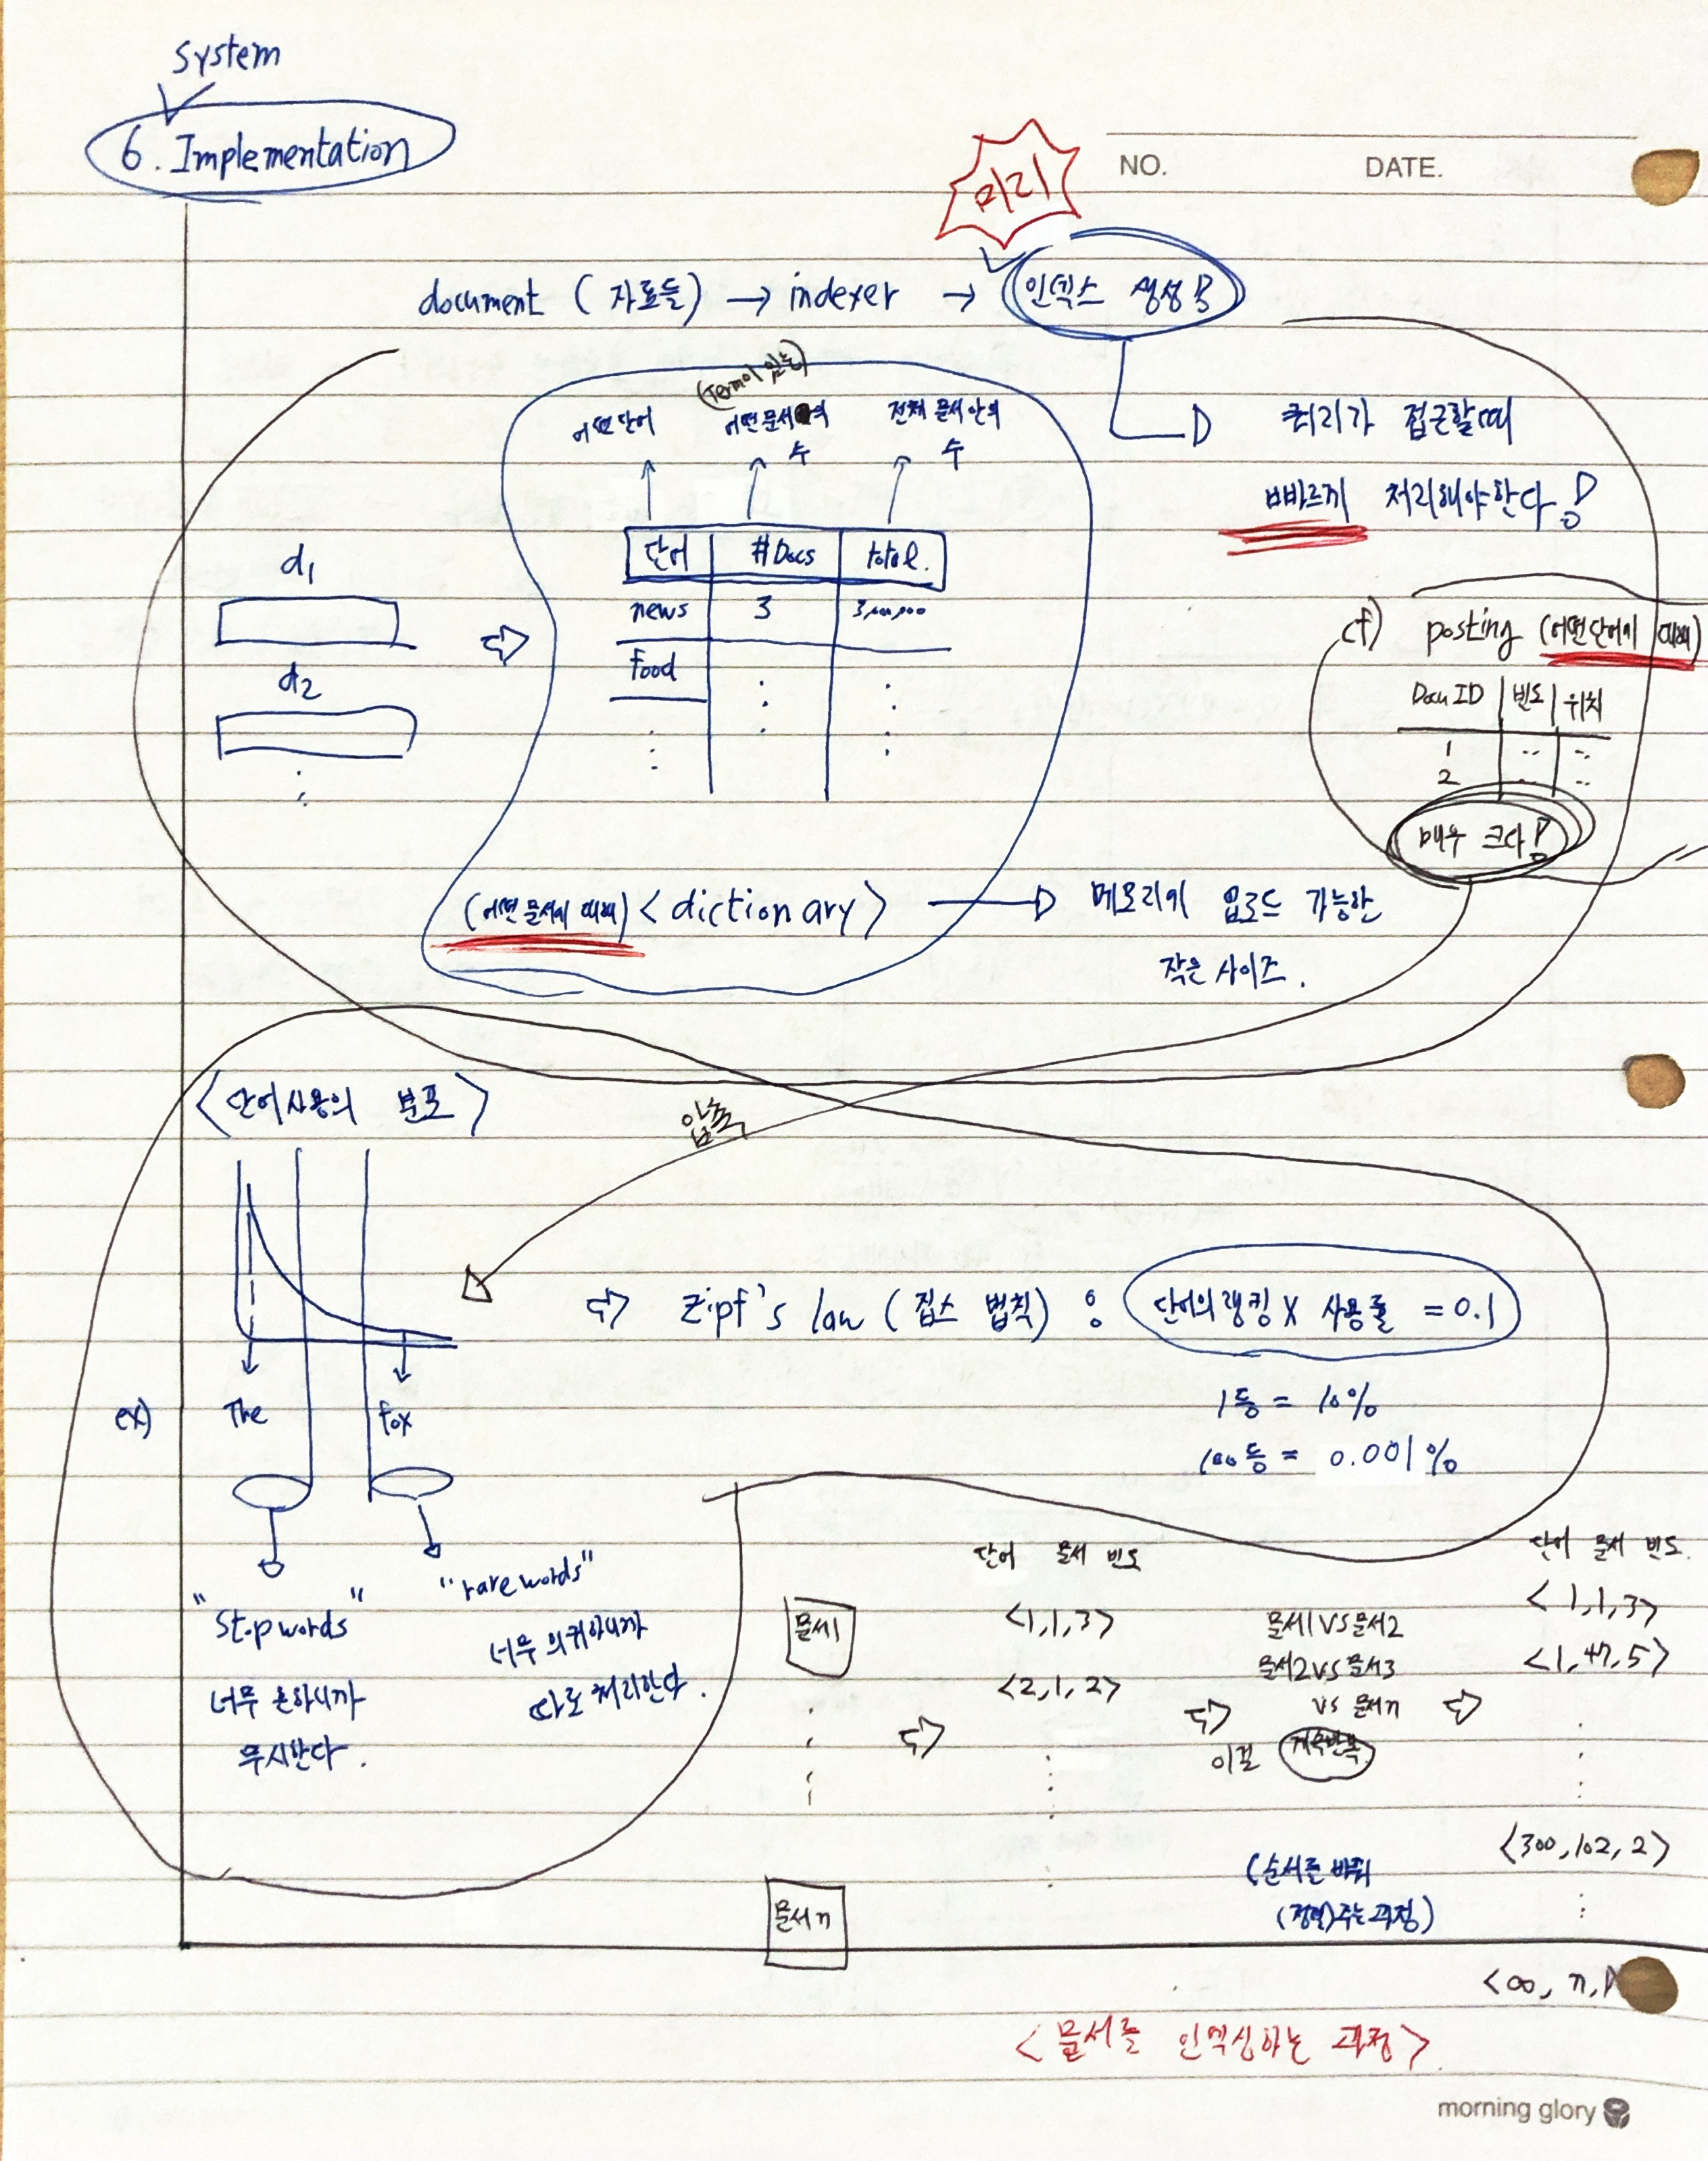 System
6. Implementation
NO. DATE.
미리
document (자료들) → indexer → 인덱스 생성!
(Term이 있는)
어떤 단어 어떤 문서의 수 전체 문서 안의 수
쿼리가 접근할때
빠르게 처리해야한다!
단어 #Docs total.
news 3 3,000,000
food
d1
d2
cf) posting (어떤 단어에 대해)
Docu ID 빈도 위치
1
2
매우 크다!
(어떤 문서에 대해) <dictionary> → 메모리에 업로드 가능한
작은 사이즈.
<단어사용의 분포>
압축
⇨ Zipf's law (집스 법칙) : 단어의 랭킹 X 사용률 = 0.1
1등 = 10%
100등 = 0.001%
ex) The fox
"Stopwords"
너무 흔하니까
무시한다.
"rare words"
너무 희귀하니까
따로 처리한다.
단어 문서 빈도
문서1
<1,1,3>
<2,1,2>
문서n
문서1 VS 문서2
문서2 VS 문서3
VS 문서n
이걸 계속반복
(순서를 바꿔
(정렬)주는 과정)
단어 문서 빈도.
<1,1,3>
<1,47,5>
<300,102,2>
<∞, n,
<문서를 인덱싱하는 과정>
morning glory